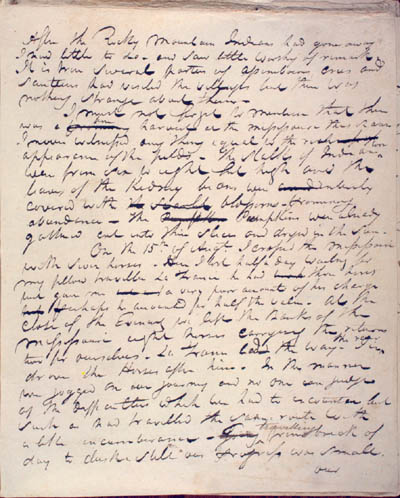 After the Rocky Mountain Indians had gone away
I had little to do - and saw little worthy of remark
It is true several parties of Assiniboin Crees and
Sauteux had visited the villages but there was
nothing strange about them -
I must not forget to mention that there
was a harvest at the Missouri this
I never witnessed any thing equal to the
appearance of the fields - The stalks of Indian
were from six to eight feet high and the
leaves of the Kidney beans were
covered with blossoms promising
abundance - the Pumpkins were already
gathered cut into thin slices and dryed in the sun -
On the 15th of August I crossed the Missouri
with seven horses - I lost half day waiting for
my fellow traveller La France he had three horses
but gave me a very poor account of his charge
perhaps he had half the value. At the
close of the Evening we left the Banks of the
Missouri eight horses carrying the returns
two for ourselves. La France led the way - I
drove the Horses after him. In this manner
we jogged on our journey and no one can judge
of the difficulties which we had to encounter but
such as had travelled the same route with
a like incumberance - travelling from break of
day to dusk still our Progress was small.
our